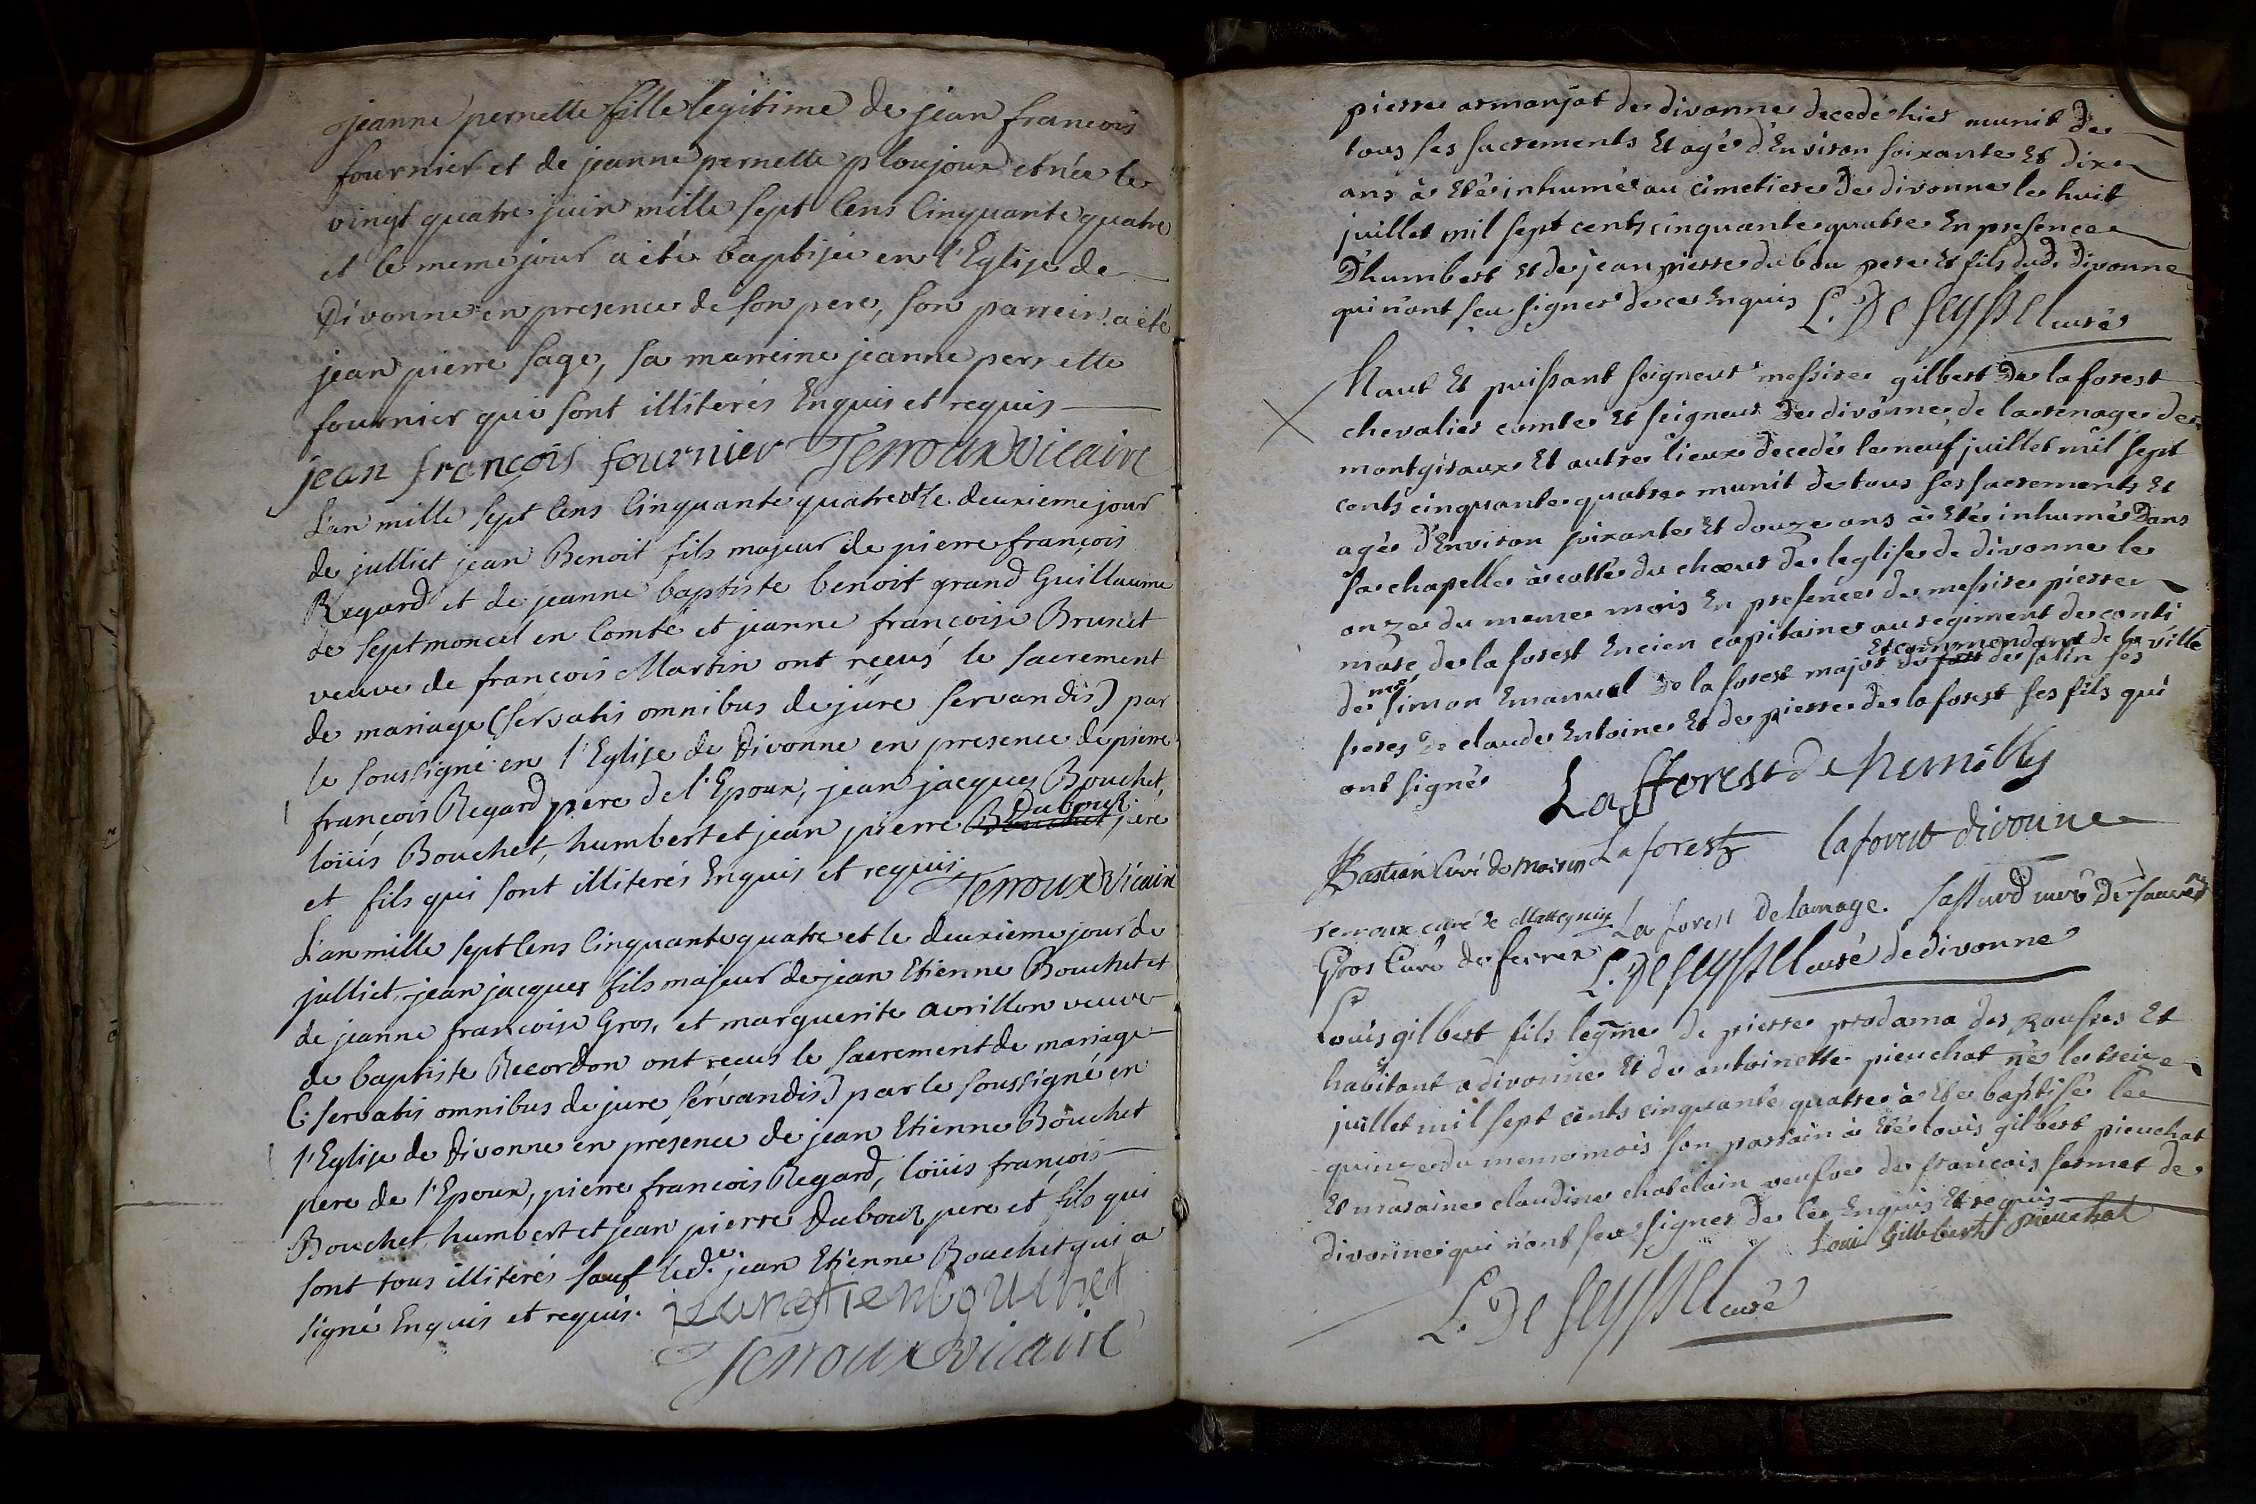 jeanne pernette fille legitime de jean francois
fournier et de jeanne pernette ploujoux et née le
vingt quatre juin mille sept Cens Cinquante quatre
et le meme jour a été baptisée en l'Eglise de
Divonne en presence de son pere, son parrein a eté
jean pierre sage, sa marreine jeanne pernette
fournier qui sont illiterés Enquis et requis
jean françois fournier Terroux vicaire
L'an mille sept Cens Cinquante quatre et le deuxieme jour
de julliet jean Benoit fils majeur de pierre françois
Regard et de jeanne baptiste benoit grand Guillaume
de septmoncel en Comté et jeanne francoise Brunet
veuve de francois Martin ont reçus le sacrement
de mariage (servatis omnibus de jure servandis) par
le soussigné en l'Eglise de Divonne en presence de pierre
francois Regard pere de l'Epoux, jean jacques Bouchet,
Dubouz
loüis Bouchet, humbert et jean pierre Bouchet pere
et fils qui sont illiterés Enquis et requis
Terroux Vicaire
L'an mille sept Cens Cinquante quatre et le deuxieme jour de
julliet, jean jacques fils majeur de jean Etienne Bouchet et
de jeanne francoise Gros, et marguerite avrillon veuve
de baptiste Recordon ont recus le sacrement de mariage
(servatis omnibus de jure servandis) par le soussigné en
l'Eglise de Divonne en presence de jean Etienne Bouchet
pere de l'Epoux, pierre francois Regard, loüis françois
Bouchet, humbert et jean pierre Dubouz pere et fils qui
sont tous illiterés sauf led. jean Etienne Bouchet qui a
signé Enquis et requis.
Terroux vicaire
pierre armanjat de divonne decedé hier munit de
tous ses sacrements Et agé d'Environ soixante Et dix
ans à Eté inhumé au cimetiere de divonne le huit
juillet mil sept cents cinquante quatre En presence
D'humbert Et de jean pierre dubou pere Et fils dud. divonne
qui n'ont sçu signer de ce Enquis L. De Seyssel curé
haut Et puissant seigneur messire gilbert De la forest
chevalier comte Et seigneur De divonne, de larenage de
montgiraux Et autre lieux decedé le neuf juillet mil sept
cents cinquante quatre munit de tous ses sacrements Et
agé d'Environ soixante Et douze ans à Eté inhumé Dans
sa chapelle à cotté du chœur de leglise de divonne le
onze du meme mois En presence de messire pierre
marc de la forest Encien capitaine au regiment de conti
Et commendant de la ville
de mre simon Emanuel De la forest major du fort de salin ses
freres De claude Entoine Et de pierre de la forest ses fils qui
ont signé
La fforest de Rumilly
Bastian Curé de La forest laforest divonne
Terroux curé de Mategnin La forest Delarnage. curé De sauverny
Gros Curé de ferrex L. De Seyssel curé de divonne
Louis gilbert fils legme de pierre prodama des Rousses Et
habitant a divonne Et de antoinette pieuchat né le treize
juillet mil sept cents cinquante quatre à Eté baptisé le
quinze du meme mois son parrain à Eté louis gilbert pieuchat
Et maraine claudine chatelain veufve de francois fermet de
divonne qui n'ont sçu signer de ce Enquis Et requis
Loui Gillibert pieuchat
L. De Seyssel curé